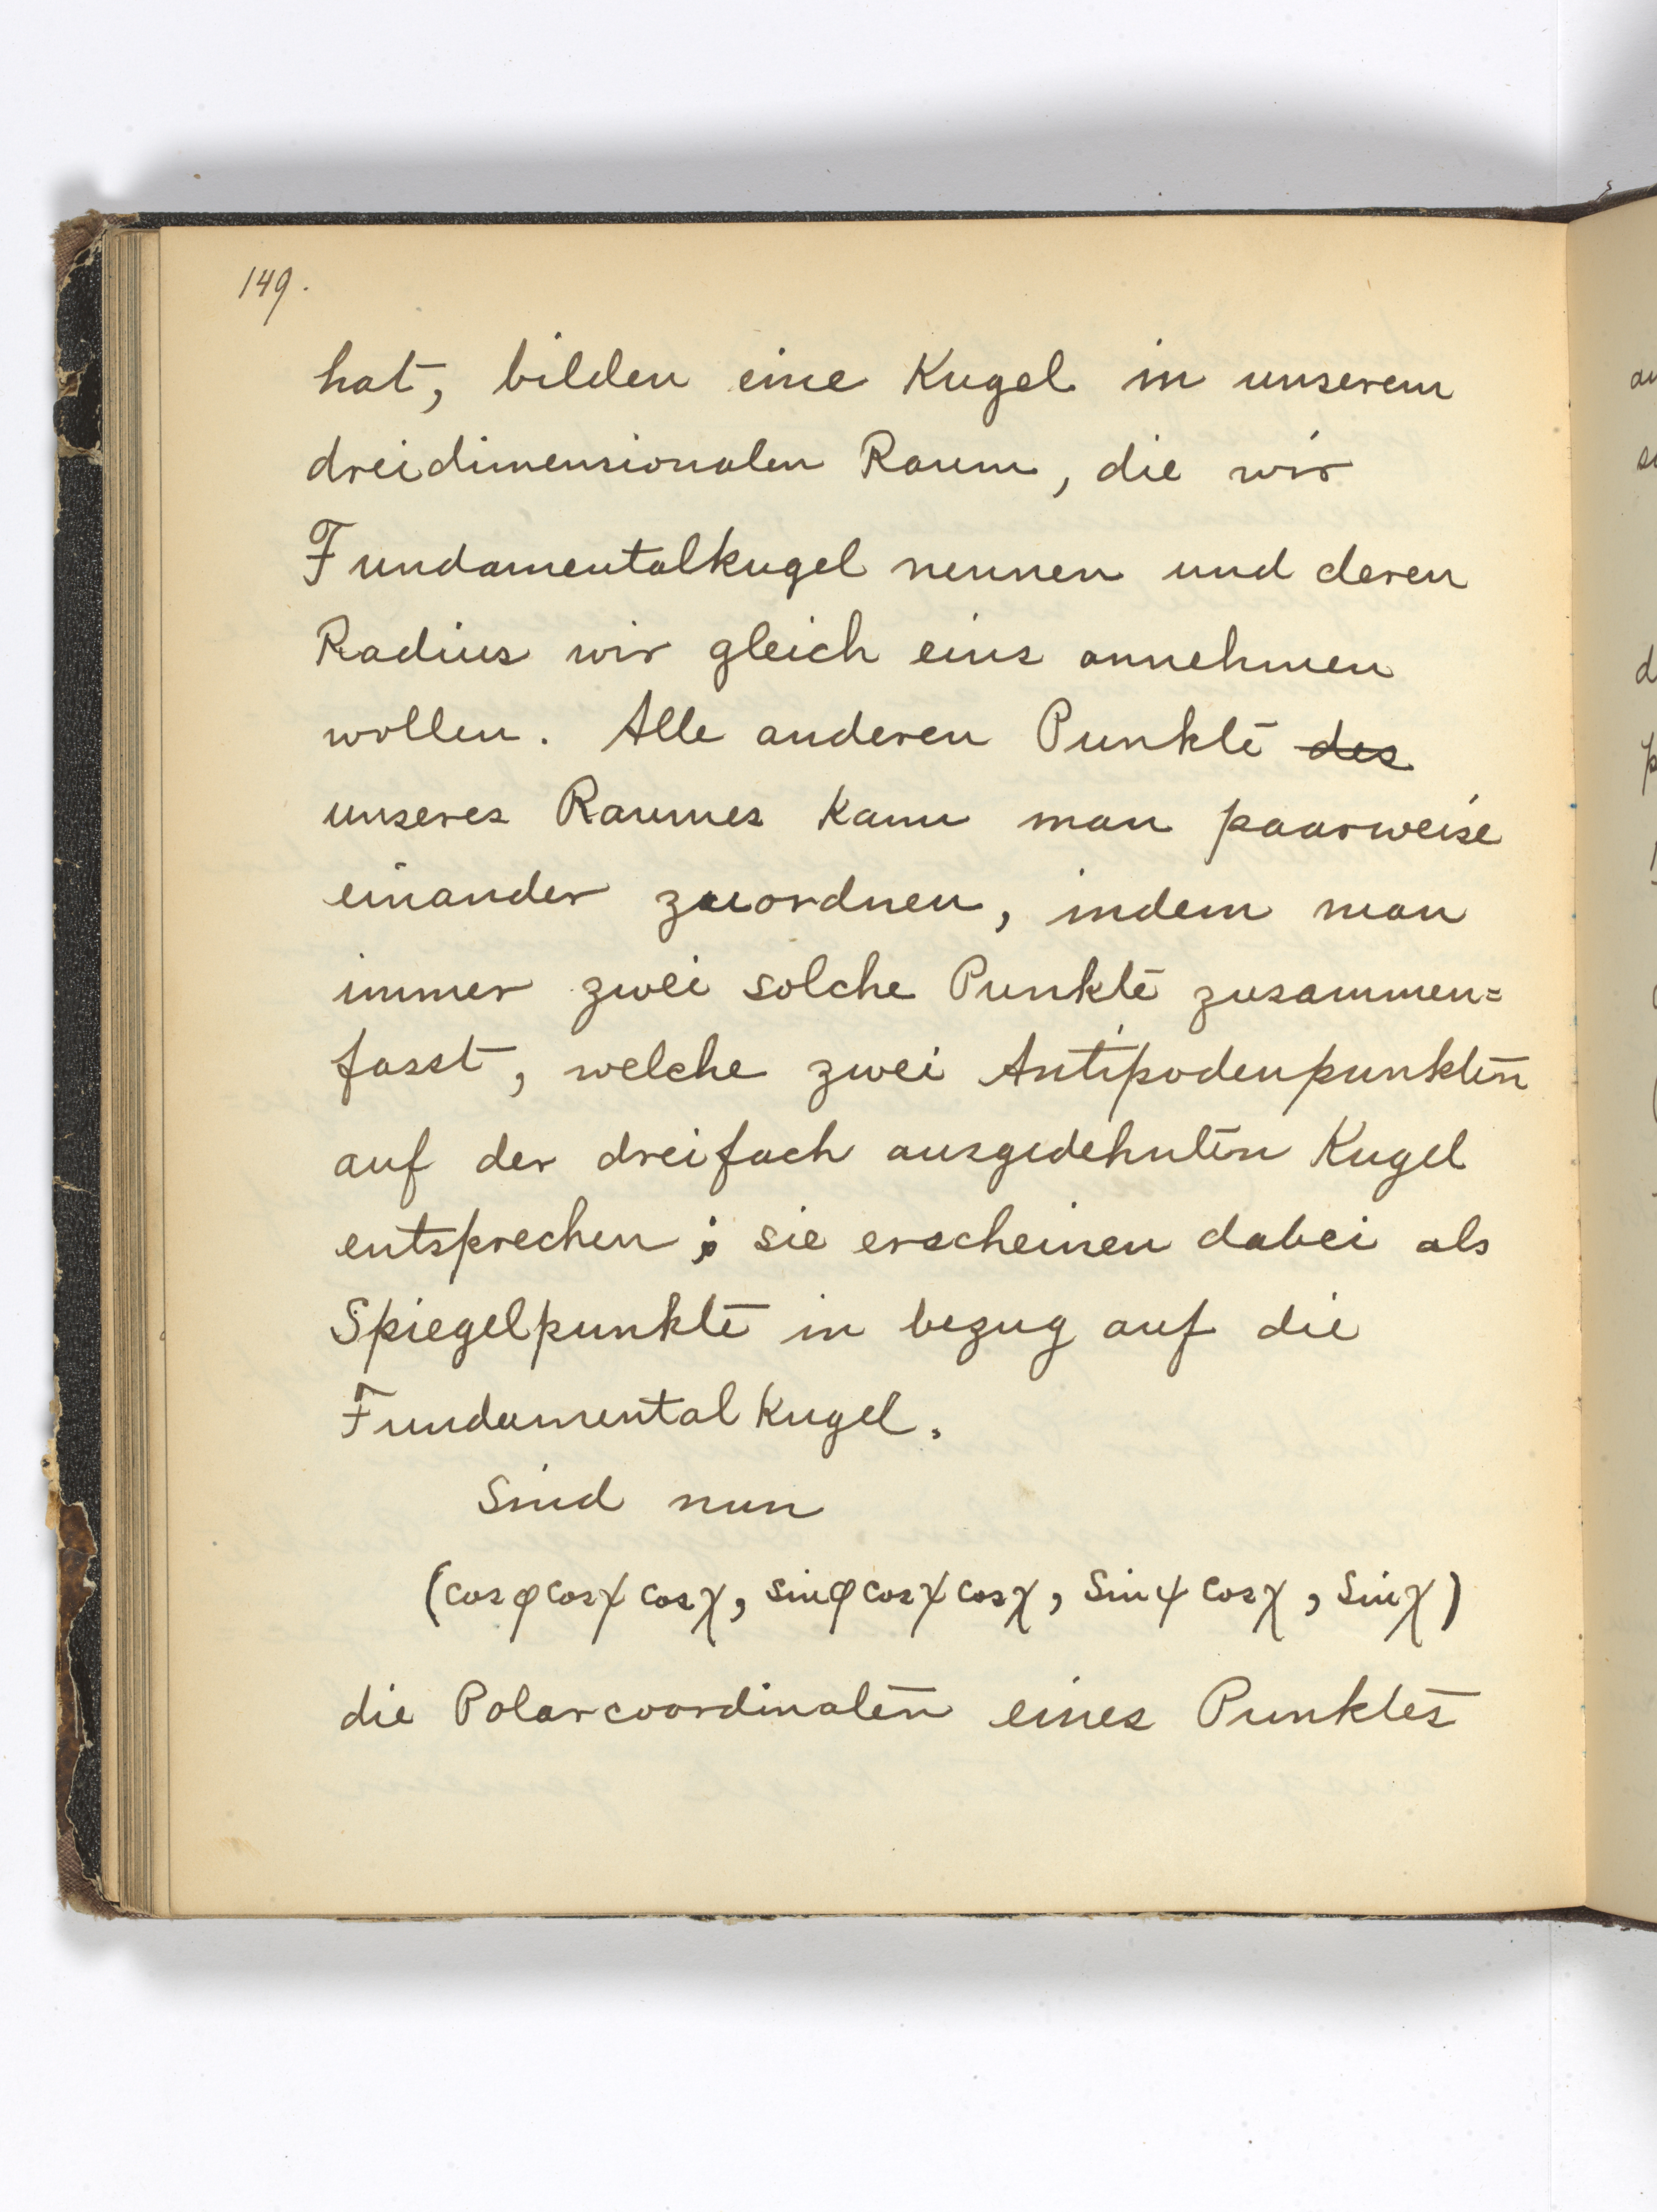 149.
hat, bilden eine Kugel in unserem
dreidimensionalen Raum, die wir
Fundamentalkugel nennen und deren
Radius wir gleich eins annehmen
wollen. Alle anderen Punkte des
unseres Raumes kann man paarweise
einander zuordnen, indem man
immer zwei solche Punkte zusammen=
fasst, welche zwei Antipodenpunkten
auf der dreifach ausgedehnten Kugel
entsprechen; sie erscheinen dabei als
Spiegelpunkte in bezug auf die
Fundamentalkugel.
Sind nun
(cos φ cos ψ cos χ, sin φ cos ψ cos χ, sin ψ cos χ, sin χ)
die Polarcoordinaten eines Punktes